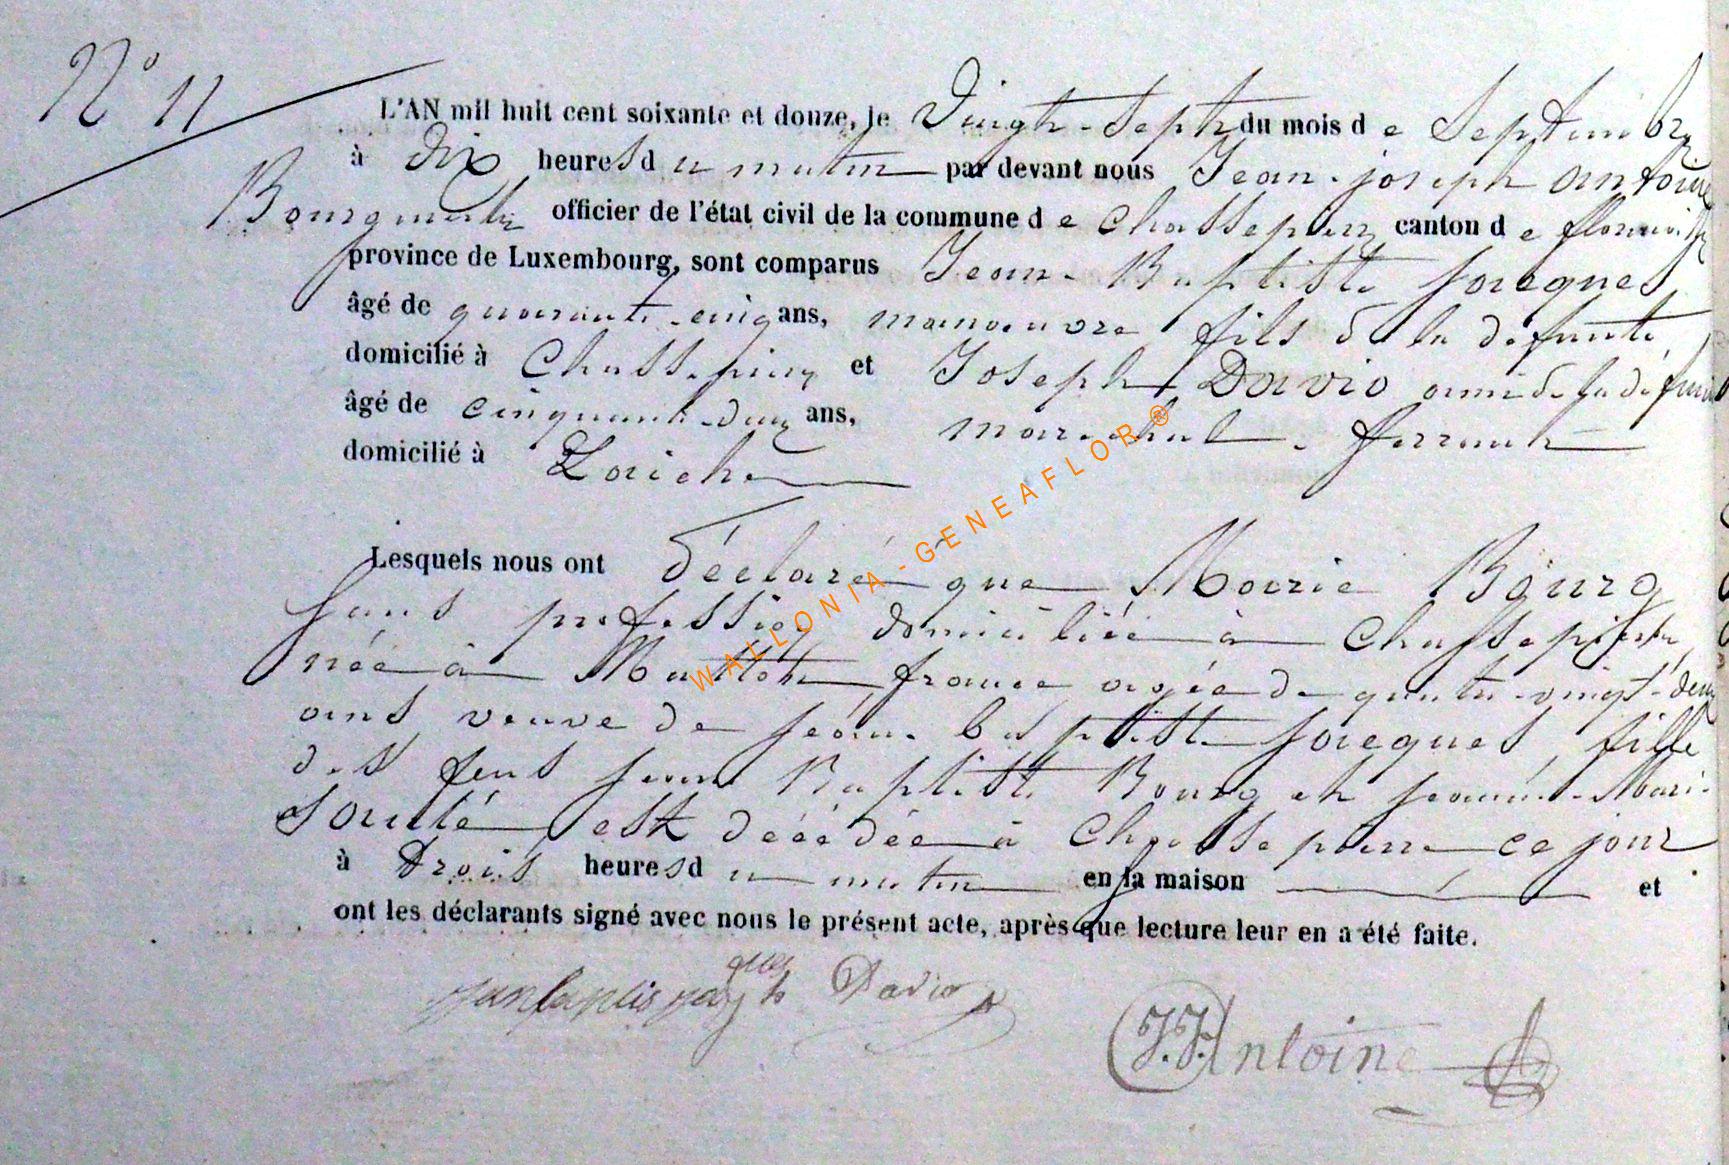 N° 11
L'AN mil huit cent soixante et douze, le Vingt-Sept du mois de Septembre
à Dix heures du matin par devant nous Jean-joseph Antoine
Bourgmestre officier de l'état civil de la commune de Chassepierre canton de florenville
province de Luxembourg, sont comparus Jean-Baptiste jacques
âgé de quarante-cinq ans, manoeuvre fils de la défunte,
domicilié à Chassepierre et Joseph Davio ami de la défunte
âgé de cinquante-deux ans, maréchal-ferrant
domicilié à Laiche
Lesquels nous ont déclaré que Marie Bourg
sans profession domiciliée à Chassepierre
née à Matton france agée de quatre-vingt-deux
ans veuve de jean-baptiste jacques, fille
des feus jean Baptiste Bourg et jeanne-Marie
est décédée à Chassepierre ce jour
à trois heures du matin en sa maison et
ont les déclarants signé avec nous le présent acte, après que lecture leur en a été faite.
ques
Davio
J.J. Antoine
WALLONIA - GENEAFLOR ®